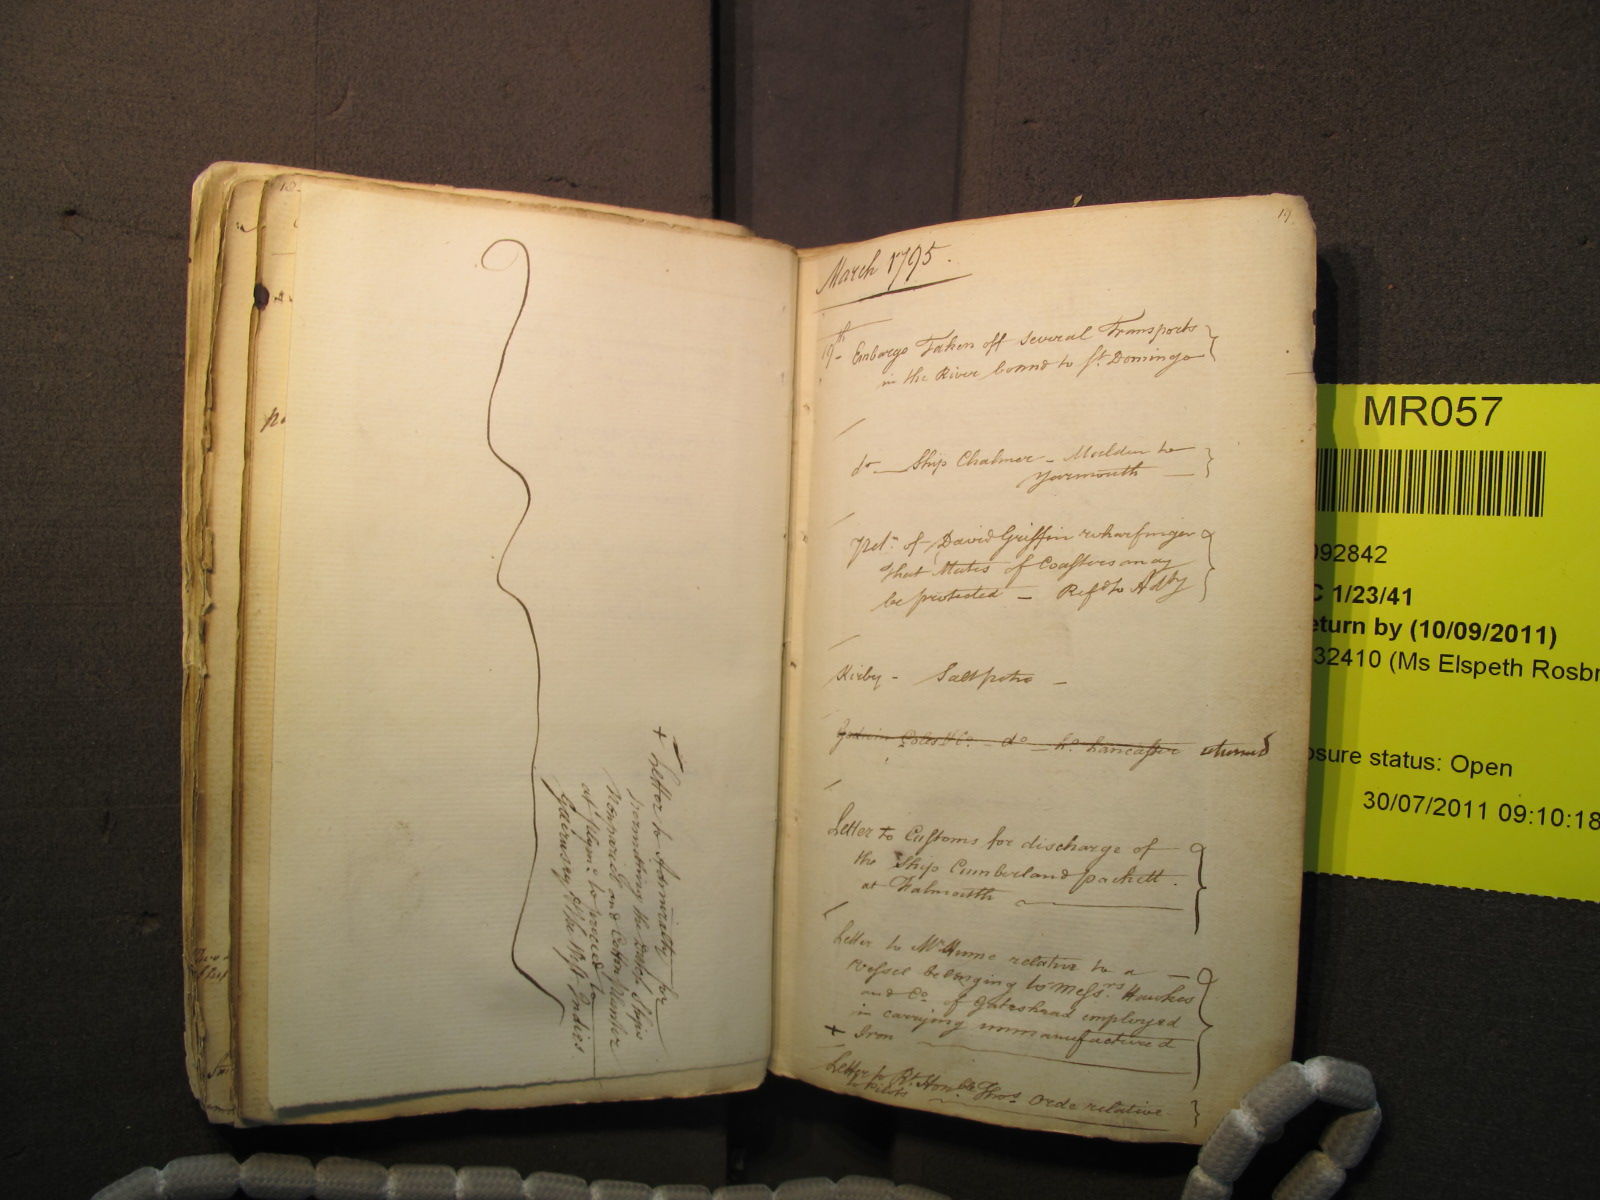 19
March 1795.
19th Embargo Taken off Several Transports
in the River bound to St. Domingo
do Ship Chalmer - Maldon to
Yarmouth
Petn. of David Griffin wharfinger
that Mates of Coasters may
be protected - Refd to Adty
Kirby - Saltpetre -
Godwin Coles & Co. - do - Lancaster returned
Letter to Customs for discharge of
the Ship Cumberland packett
at Falmouth
Letter to Mr. Hume relative to a
vessel belonging to Messrs. Hawkes
and Co. of Gateshead employed
in carrying unmanufactured
+ Iron
Letter to Rt. Honble Thos. Orde relative
to Pilots
+ Letter to Admiralty for
permitting the Dutch Ships
Nonpareil and Cotton Planter
at Plymo. to proceed to
Guernsey & the West Indies.
MR057
092842
C 1/23/41
eturn by (10/09/2011)
32410 (Ms Elspeth Rosbr
osure status: Open
30/07/2011 09:10:18